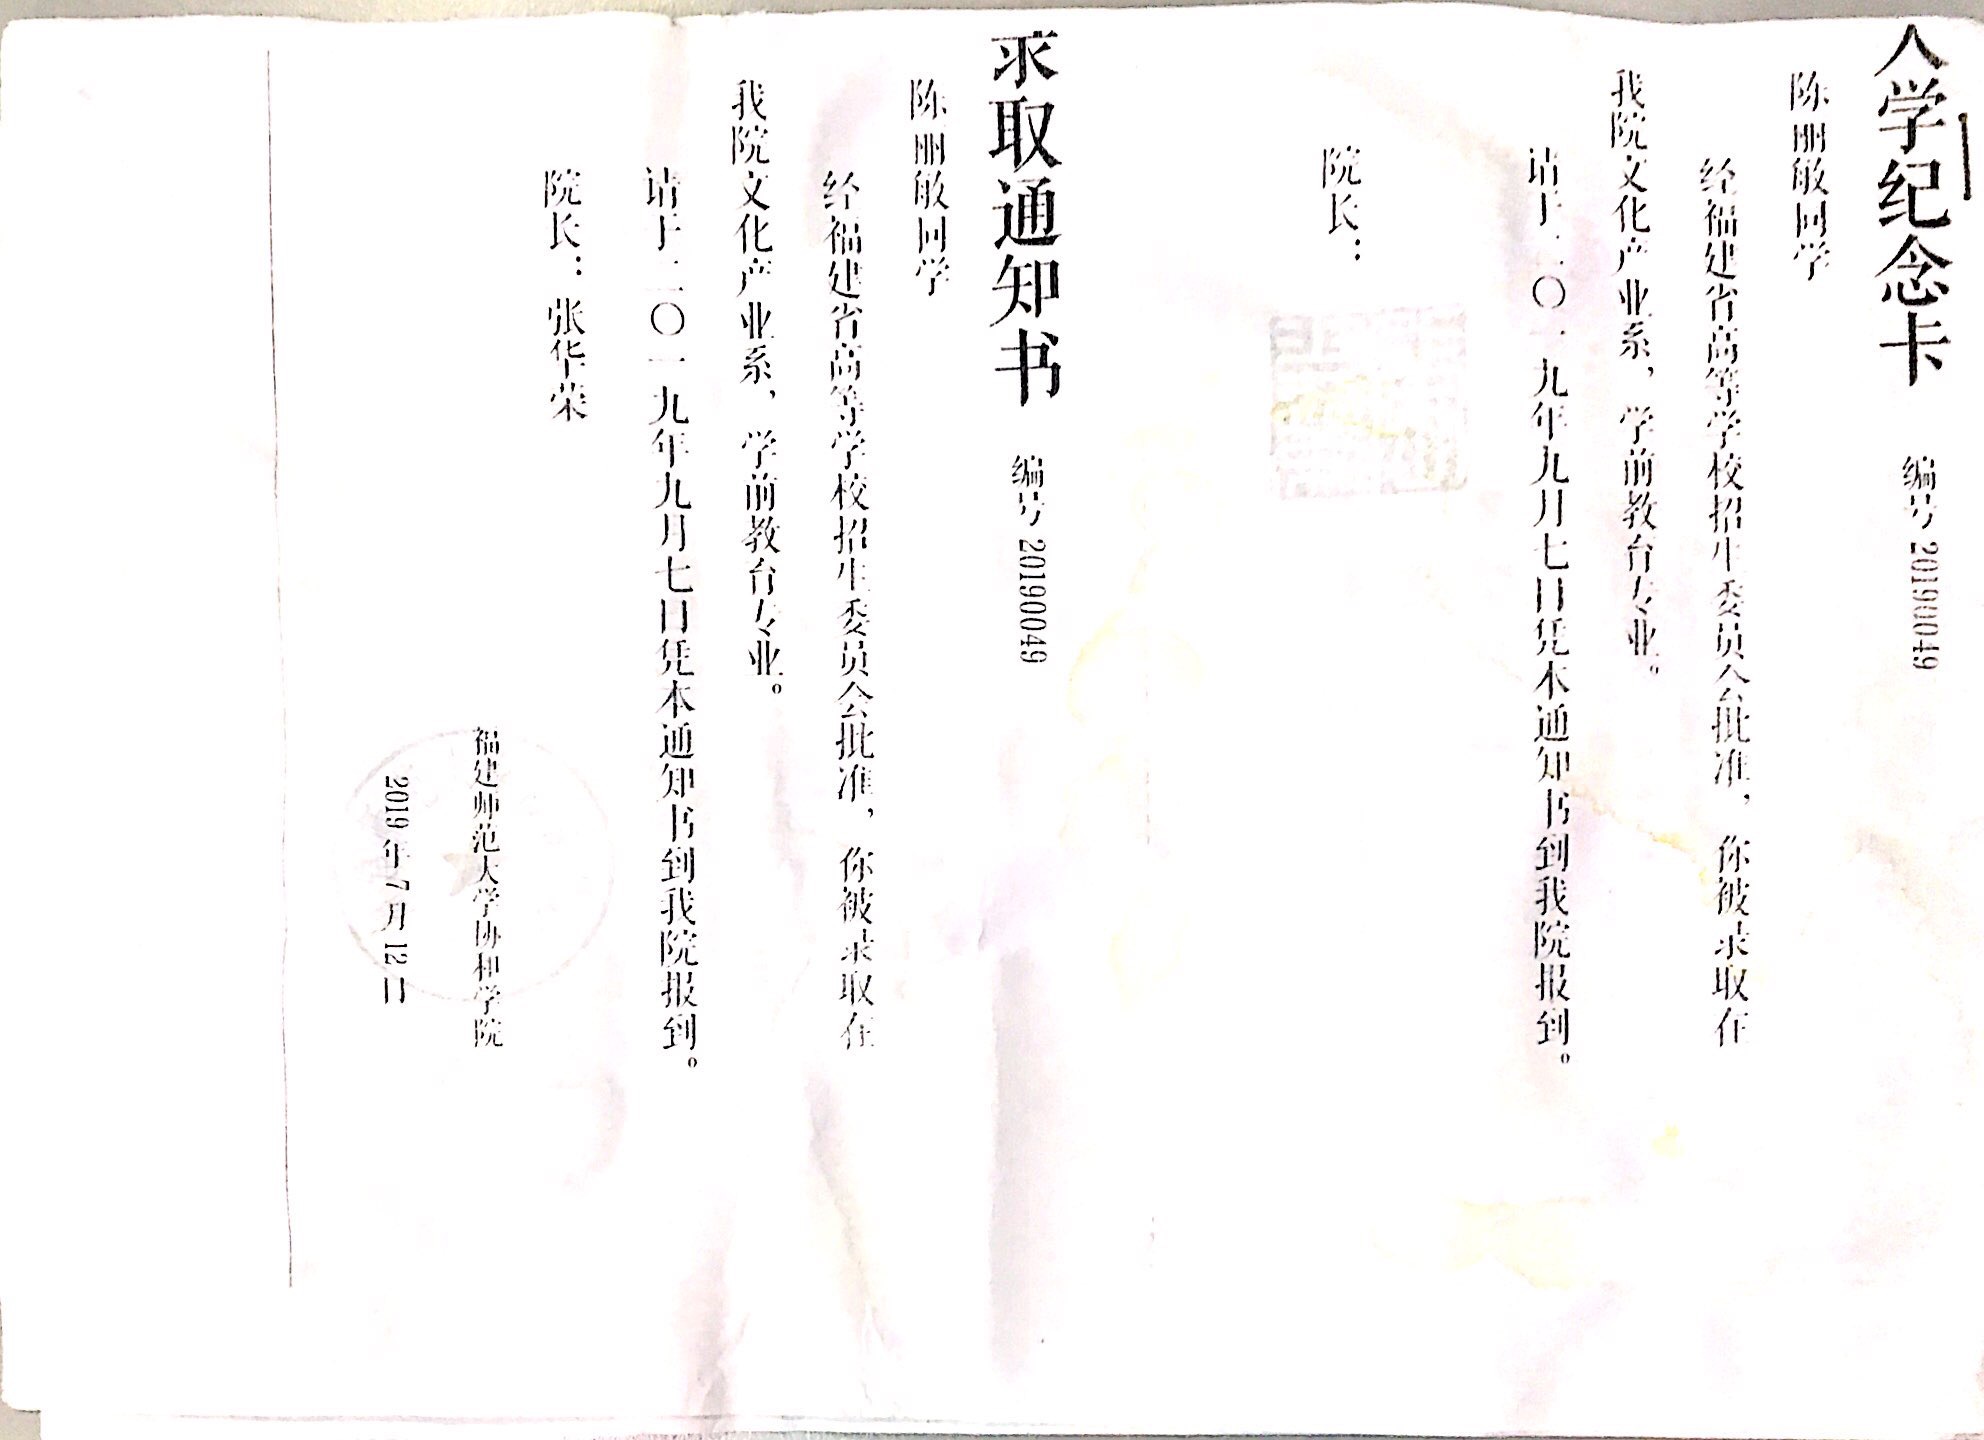 入学纪念卡 编号 20190049
陈丽敏同学
经福建省高等学校招生委员会批准，你被录取在
我院文化产业系，学前教育专业。
请于二〇一九年九月七日凭本通知书到我院报到。
院长：
录取通知书 编号 20190049
陈丽敏同学
经福建省高等学校招生委员会批准，你被录取在
我院文化产业系，学前教育专业。
请于二〇一九年九月七日凭本通知书到我院报到。
院长：张华荣
福建师范大学协和学院
2019年7月12日